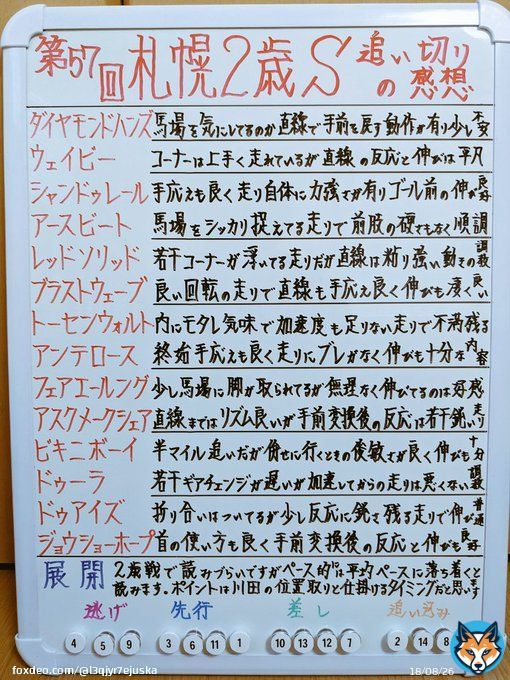 第57回札幌2歳S 追い切りの感想
ダイヤモンドハンズ 馬場を気にしてるのか直線で手前を戻す動作が有り少し不安
ウェイビー コーナーは上手く走れているが直線の反応と伸びは平凡
シャンドゥレール 手応えも良く走り自体に力強さが有りゴール前の伸び良好
アースビート 馬場をシッカリ捉えてる走りで前肢の硬さもなく順調
レッドソリッド 若干コーナーが浮いてる走りだが直線は粘り強い動き
ブラストウェーブ 良い回転の走りで直線も手応え良く伸びも凄く良い
トーセンウォルト 内にモタレ気味で加速度も足りない走りで不満残る
アンテロース 終始手応えも良く走りにブレがなく伸びも十分な内容
フェアエールング 少し馬場に脚が取られてるが無理なく伸びてるのは好感
アスクメークシェア 直線まではリズム良いが手前変換後の反応は若干鈍い走り
ビキニボーイ 半マイル追いだが併せに行くときの俊敏さが良く伸びも十分
ドゥーラ 若干ギアチェンジが遅いが加速してからの走りは悪くない
ドゥアイズ 折り合いはついてるが少し反応に鈍さ残る走りで伸び普通
ジョウショーホープ 首の使い方も良く手前変換後の反応と伸びも良好
展開 2歳戦で読みづらいですがペース的には平均ペースに落ち着くと
読みます。ポイントは川田の位置取りと仕掛けるタイミングだと思います
逃げ 先行 差し 追い込み
4 5 9 3 6 11 1 10 13 12 7 2 14 8
foxdeo.com/@l3qjyr7ejuska
18/08/26